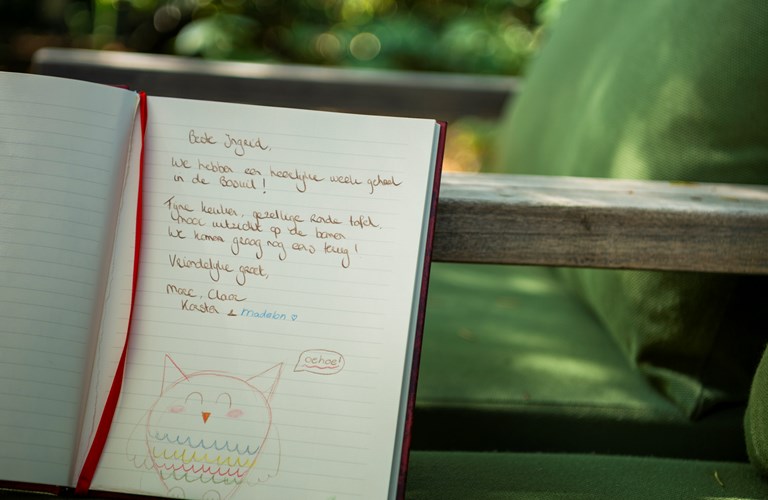 Beste Ingrid,
We hebben een heerlijke week gehad
in de Bosuil!
Fijne keuken, gezellige ronde tafel,
mooi uitzicht op de bomen.
We komen graag nog eens terug!
Vriendelijke groet,
Marc, Claar
Kaster & Madelon ♡
oehoe!